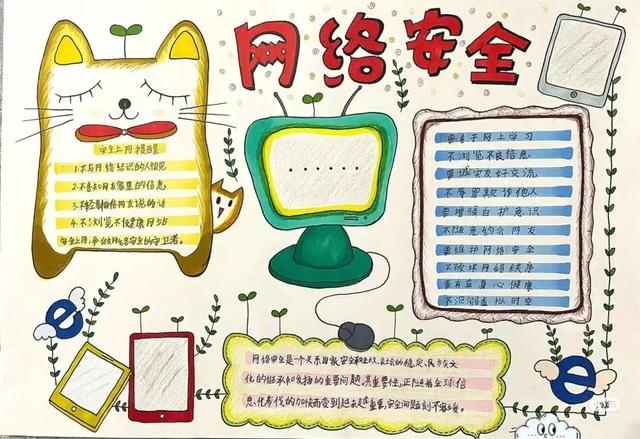 网络安全
安全上网提醒
1.不与网络结识的人相见
2.不告知网友家里的信息
3.不轻易相信网友说的话
4.不浏览不健康网站
安全上网,争做网络安全的守卫者。
······
要善于网上学习
不浏览不良信息
要诚实友好交流
不辱欺诈他人
要增强自护意识
不随意约会网友
要维护网络安全
不破坏网络秩序
要有益身心健康
不沉溺虚拟时空
网络安全是一个关系国家安全和主权,社会的稳定、民族文
化的继承和发扬的重要问题,其重要性,正随着全球信
息化步伐的加快而变到越来越重要,安全问题刻不容缓。